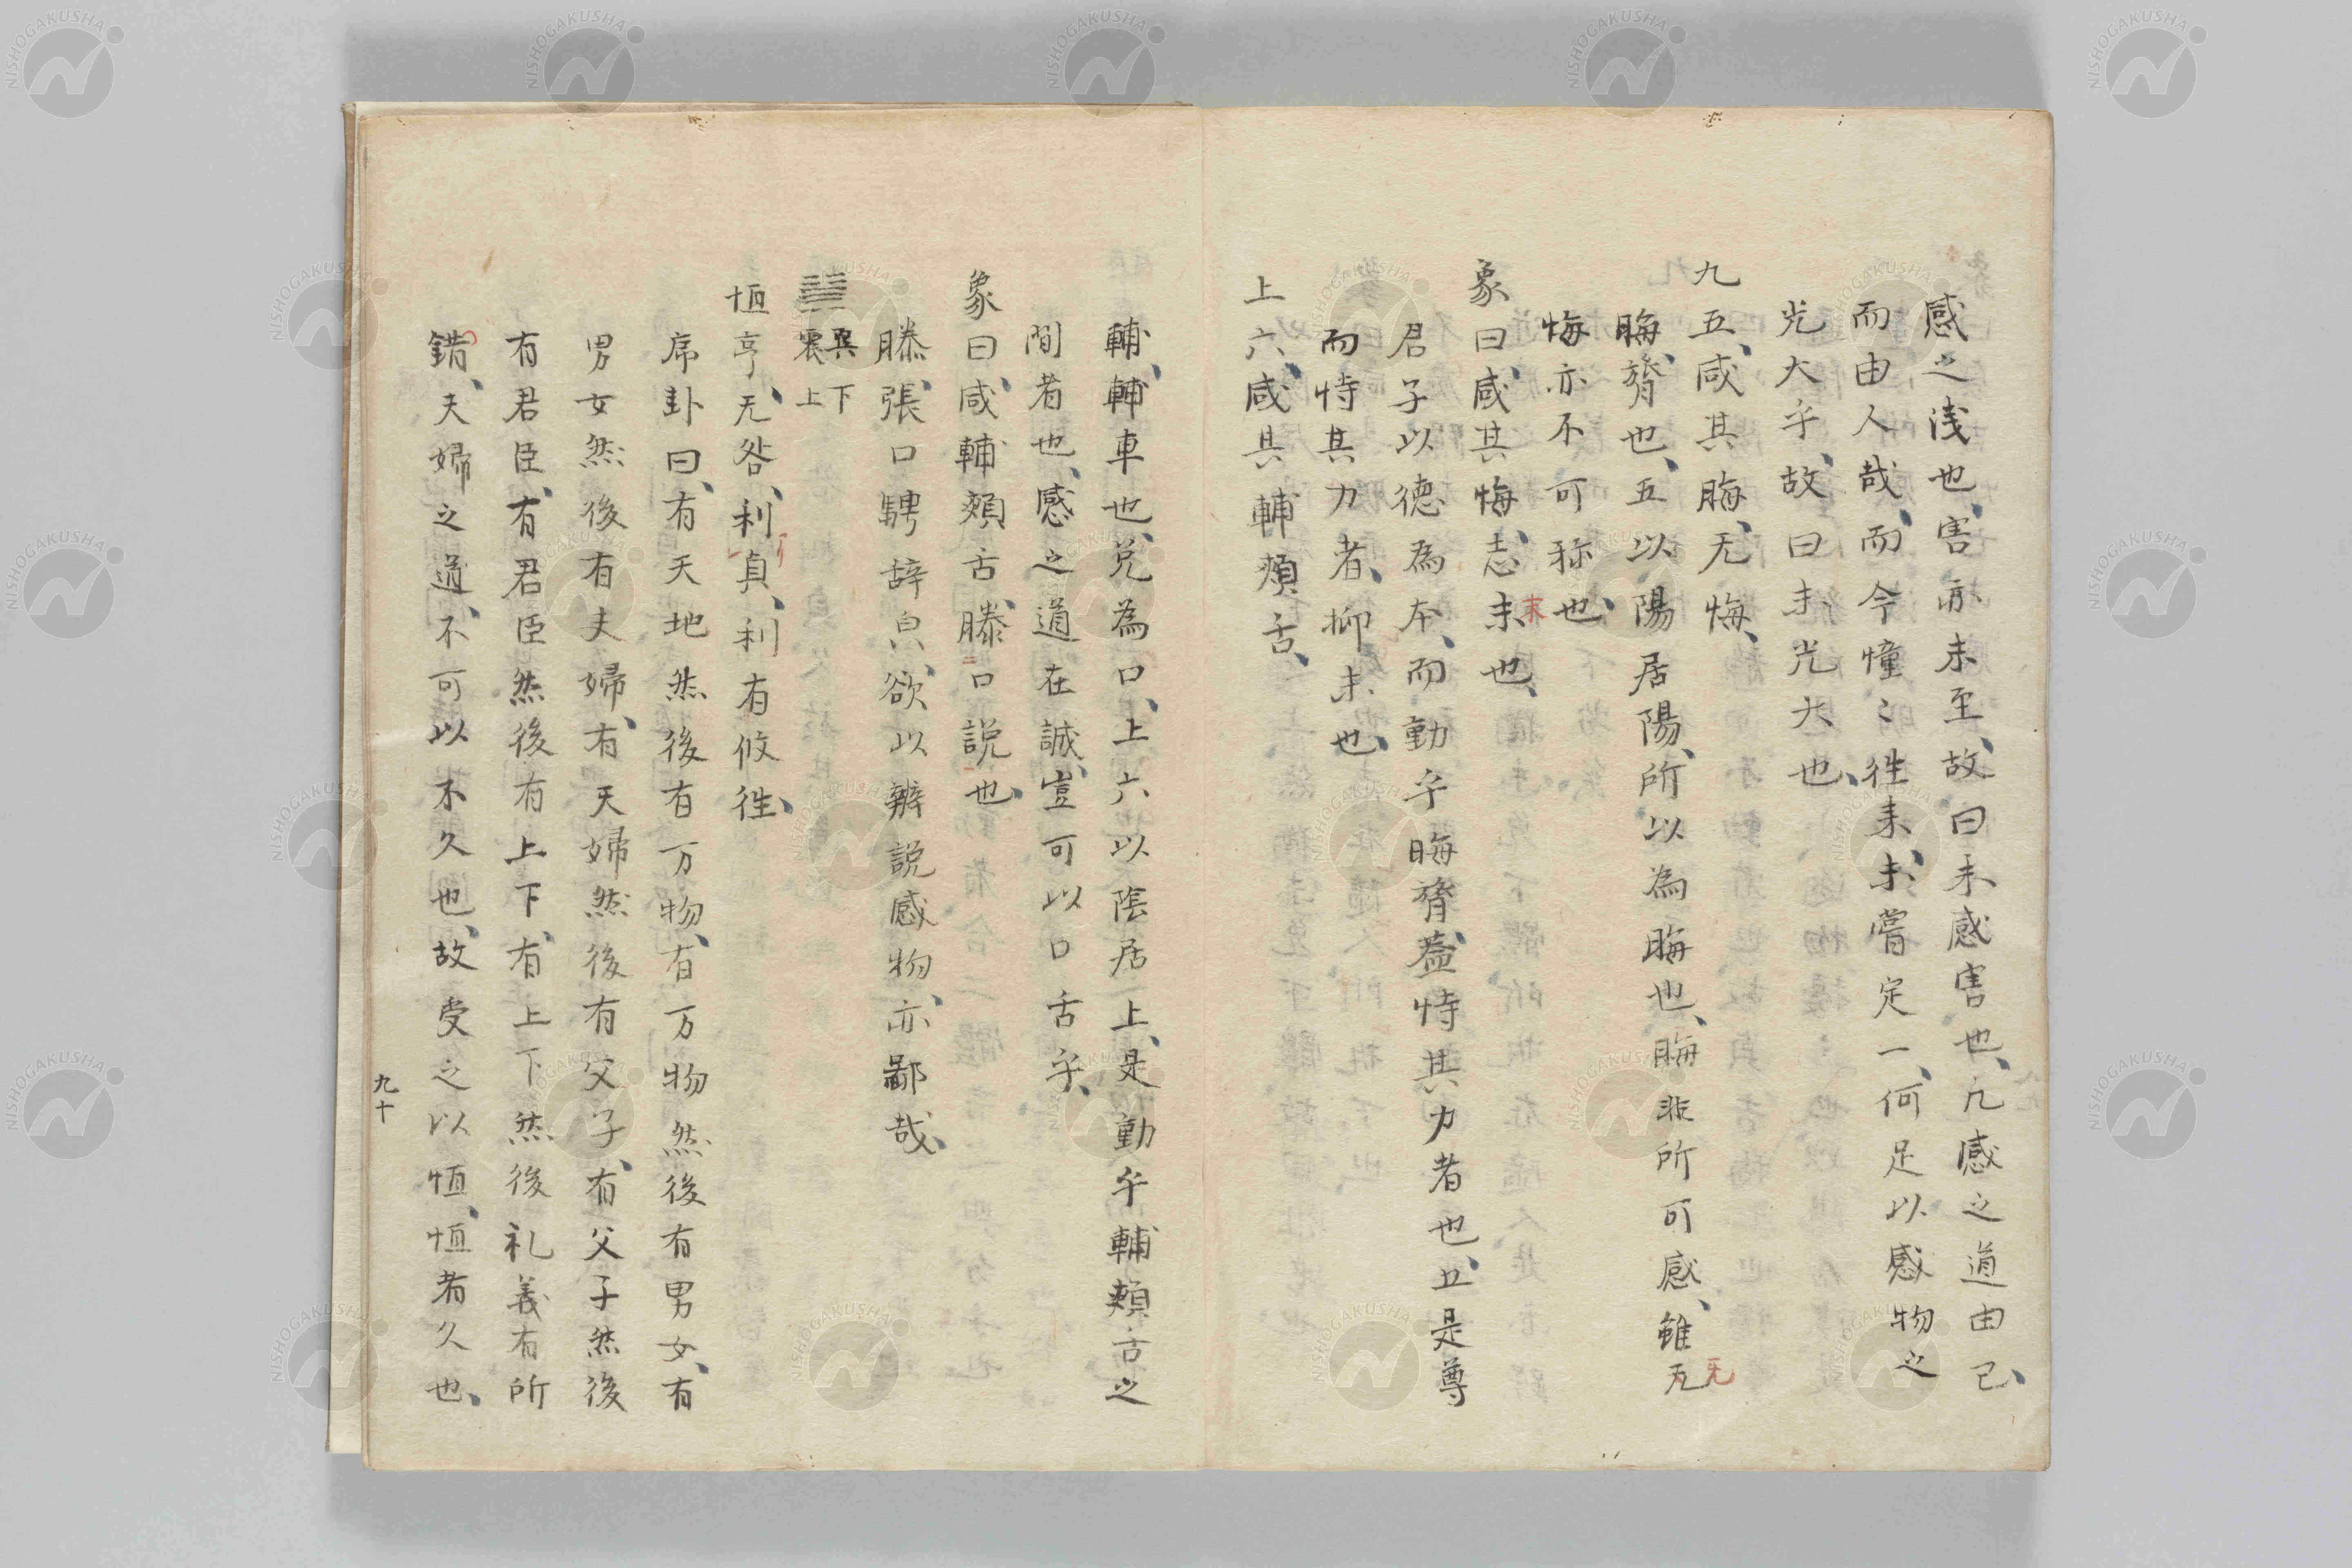 感之浅也、害亦未至、故曰未感害也、凢感之道由己、
而由人哉、而今憧〻徃来、未嘗定一、何足以感物之
光大乎、故曰未光大也、
九五、咸其脢、无悔、
脢、膂也、五以陽居陽、所以為脢也、脢非所可感、雖无
无
悔亦不可称也、
象曰、咸其悔、志未也、
末
君子以德為本、而動乎脢膂、蓋恃其力者也、五是尊
而恃其力者、抑末也、
上六、咸其輔頬舌、
輔、輔車也、兌為口、上六以陰居上、是動乎輔頬舌之
間者也、感之道在誠、豈可以口舌乎、
象曰、咸輔頬舌、滕口説也、
滕、張口騁辞皃、欲以辨説感物、亦鄙哉、
巽下
震上
恒亨、无咎、利貞、利有攸徃、
序卦曰、有天地然後有万物、有万物然後有男女、有
男女然後有夫婦、有夫婦然後有父子、有父子然後
有君臣、有君臣然後有上下、有上下然後礼義有所
錯、夫婦之道、不可以不久也、故受之以恒、恒者久也、
九十
NISHOGAKUSHA